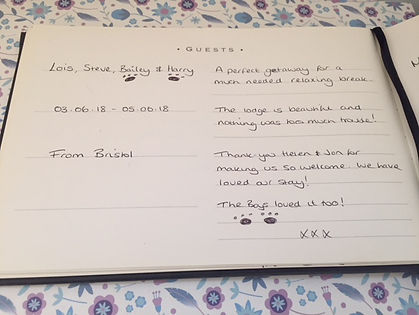 • GUESTS •
Lois, Steve, Bailey & Harry
A perfect getaway for a
much needed relaxing break.
03.06.18 - 05.06.18
The lodge is beautiful and
nothing was too much trouble!
From Bristol
Thank-you Helen & Jon for
making us so welcome. We have
loved our stay!
The Boys loved it too!
x x x